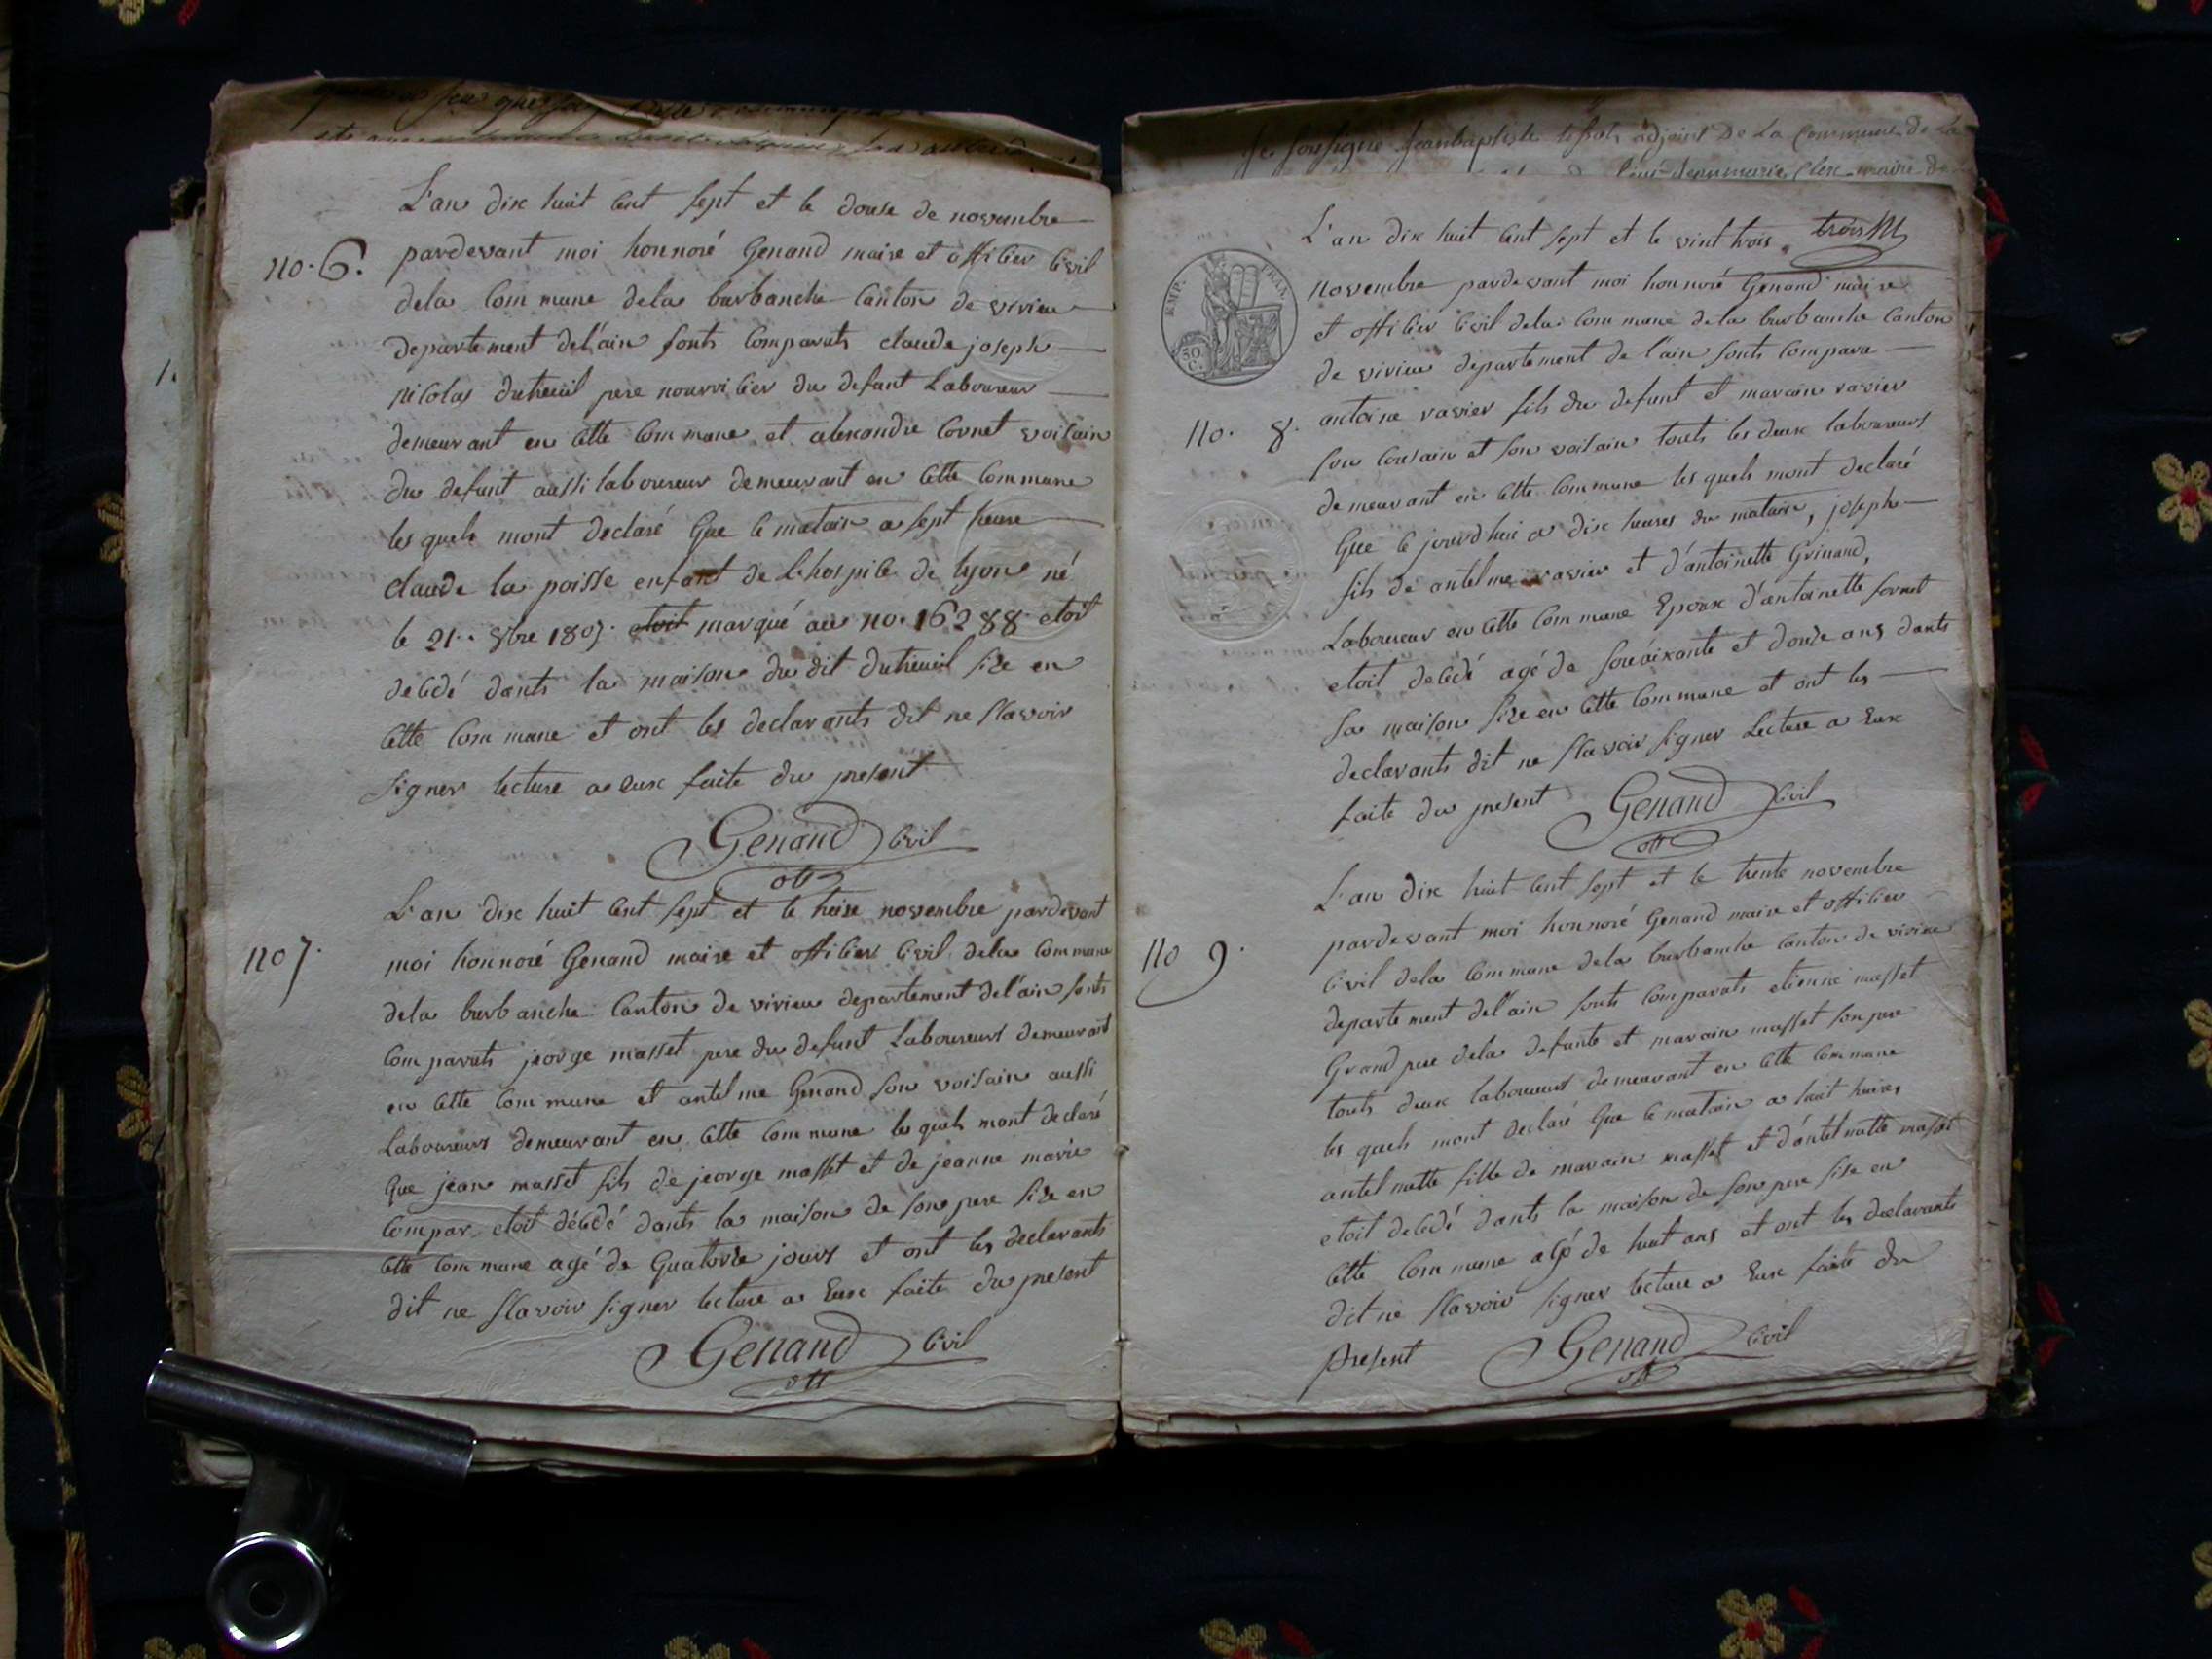 L'an dix huit cent sept et le douse de novembre
no. 6. pardevant moi honnoré Genand maire et officier civil
dela commune dela burbanche canton de virieu
departement del'ain sonts comparuts claude joseph
nicolas dutreuil pere nourricier du defunt Laboureur
demeurant en cette commune et alexandre Cornet voisain
du defunt aussi laboureur demeurant en cette commune
les quels mont declaré que ce matain a sept heure
claude la poisse enfant de l'hospice de lyon né
le 21.. 8bre 1807. etoit marqué au no. 16288 etoit
decedé dants la maison du dit dutreuil size en
cette commune et ont les declarants dit ne scavoir
signer lecture a eux faite du present
Genand civil
off
L'an dix huit cent sept et le treize novembre pardevant
no 7. moi honnoré Genand maire et officier civil dela commune
dela burbanche canton de virieu departement del'ain sonts
comparuts jeorge masset pere du defunt Laboureurs demeurant
en cette commune et antelme Genand son voisain aussi
laboureurs demeurant en cette commune les quels mont declaré
que jean masset fils de jeorge masset et de jeanne marie
compar etoit décédé dants la maison de son pere size en
cette commune agé de quatorze jours et ont les declarants
dit ne scavoir signer lecture a eux faite du present
Genand civil
off
1.
Je soussigné jeanbaptiste adjoint de la Commune de La
maire de
L'an dix huit cent sept et le vint trois trois
EMP. FRAN.
50 C.
novembre pardevant moi honnoré Genand maire
et officier civil dela commune dela burbanche canton
de virieu departement de l'ain sonts compara
no. 8. antoine ravier fils du defunt et marain ravier
son cousain et son voisain touts les deux laboureurs
demeurant en cette commune les quels mont declaré
que ce jourdhui a dix heures du mataine, joseph
fils de antelme ravier et d'antoinette Grinand,
Laboureur en cette commune Epoux d'antoinette fornet
etoit decedé agé de souaixante et douze ans dants
sa maison size en cette commune et ont les
declarants dit ne scavoir signer Lecture a Eux
faite du present Genand civil
off
L'an dix huit cent sept et le trente novembre
pardevant moi honnoré Genand maire et officier
no 9. civil dela commune dela burbanche canton de virieu
departement del'ain sonts comparuts etienne masset
Grand pere dela defunte et marain masset son pere
touts deux laboureurs demeurant en cette commune
les quels mont declaré que ce matain a huit heures
antelmette fille de marain masset et d'antelmette masset
etoit decedé dants la maison de son pere sise en
cette commune agé de huit ans et ont les declarants
dit ne scavoir signer lecture a Eux faite du
present Genand civil
off